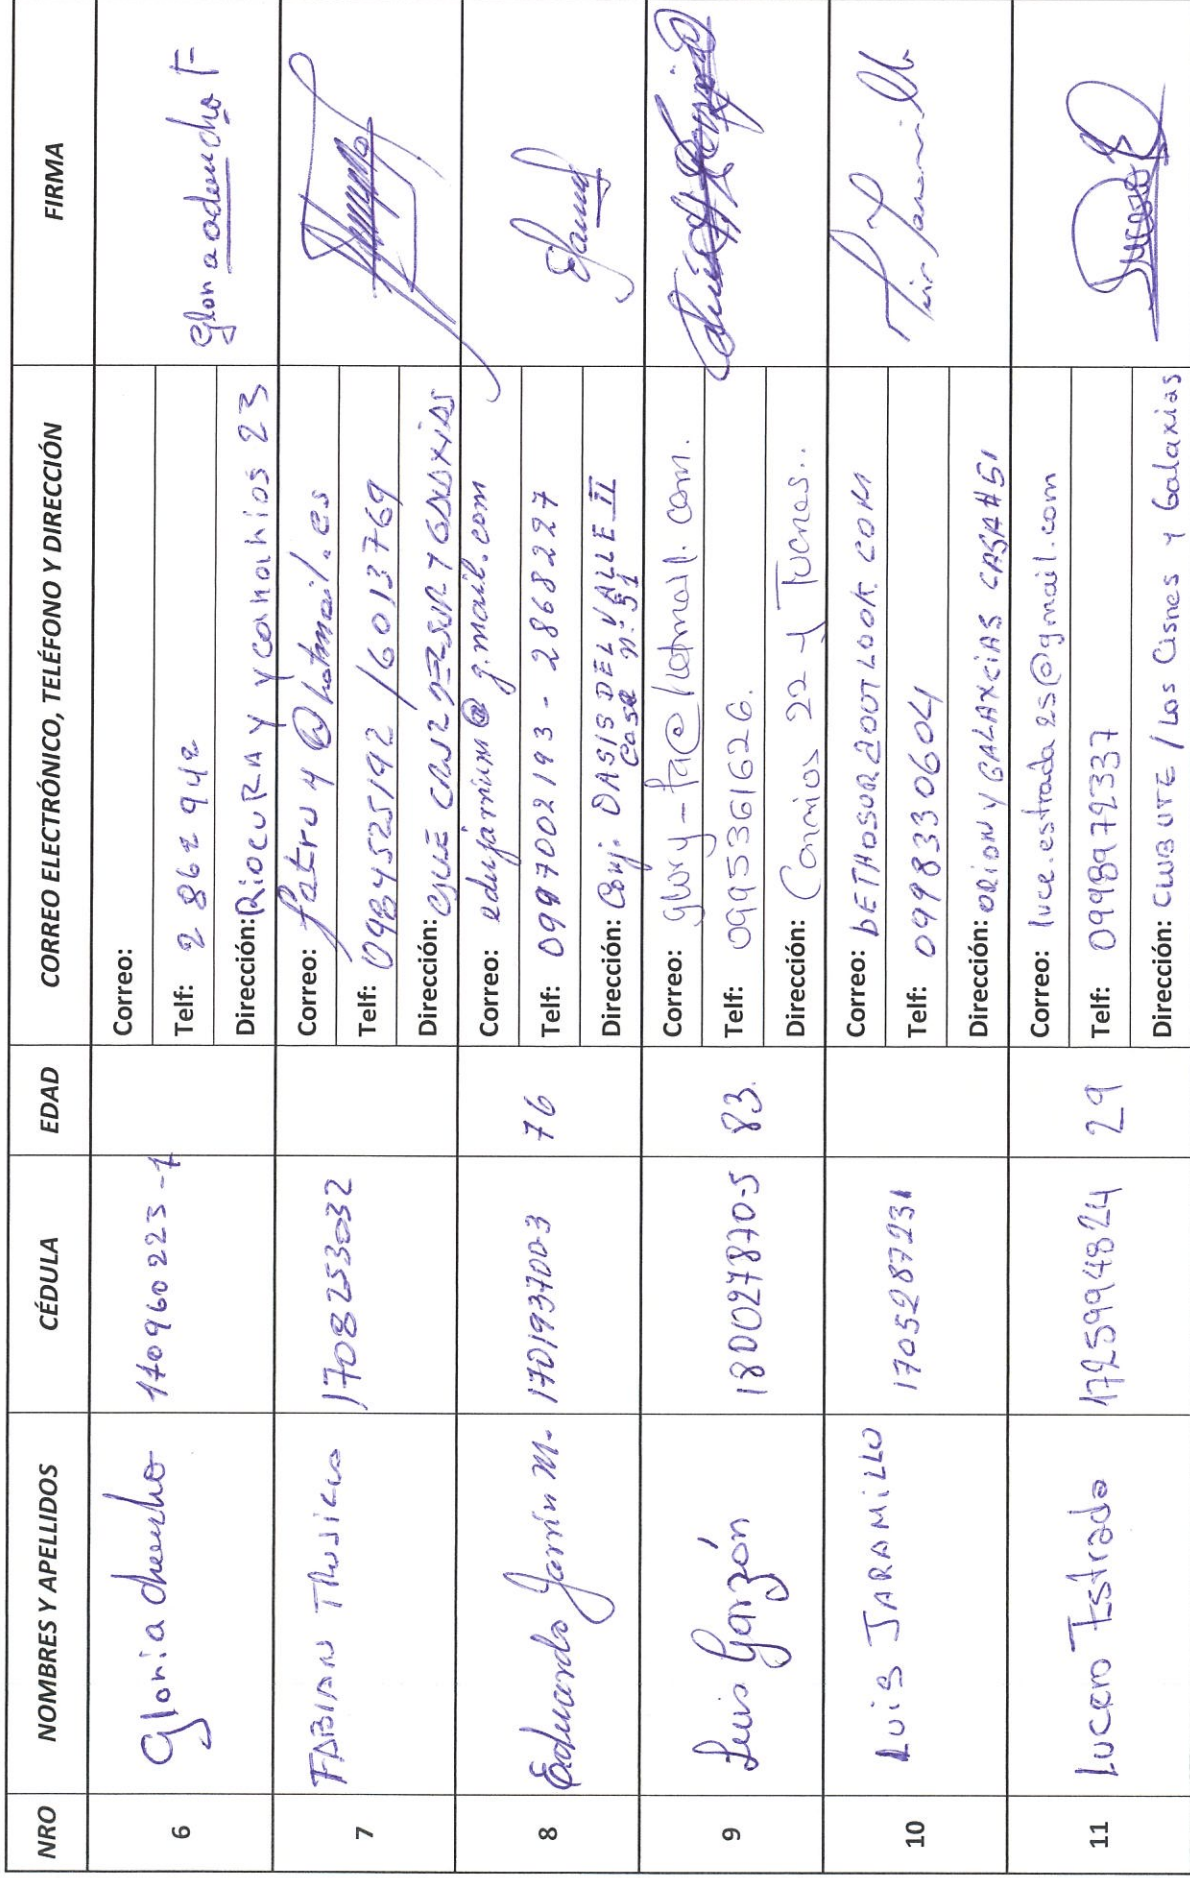 NRO NOMBRES Y APELLIDOS CÉDULA EDAD CORREO ELECTRÓNICO, TELÉFONO Y DIRECCIÓN FIRMA
6 Gloria 170960223-1
Correo:
Telf: 2862942
Dirección: Riocura y canarios 23
7 FABIAN 1708253032
Correo: fatru4@hotmail.es
Telf: 0984525192 / 6013769
Dirección:
8 Eduardo Jarrín M. 170193700-3 76
Correo: edujarrinm@g.mail.com
Telf: 0997002193 - 2868227
Dirección: Conj. OASIS DEL VALLE II
Casa n:51
9 Luis Garzón 180027870-5 83.
Correo: glory-fa@hotmail.com.
Telf: 0995361626.
Dirección: Canarios 22 y Tucanes..
10 LUIS JARAMILLO 1705287231
Correo: bETHOSUR20OUTLOOK.COM
Telf: 0998330604
Dirección: ORION Y GALAXCIAS CASA#51
Luis Jaramillo
11 Lucero Estrada 1725994824 29
Correo: luce.estrada25@gmail.com
Telf: 0998972337
Dirección: CLUB UTE / Los Cisnes y Galaxias
Lucero E